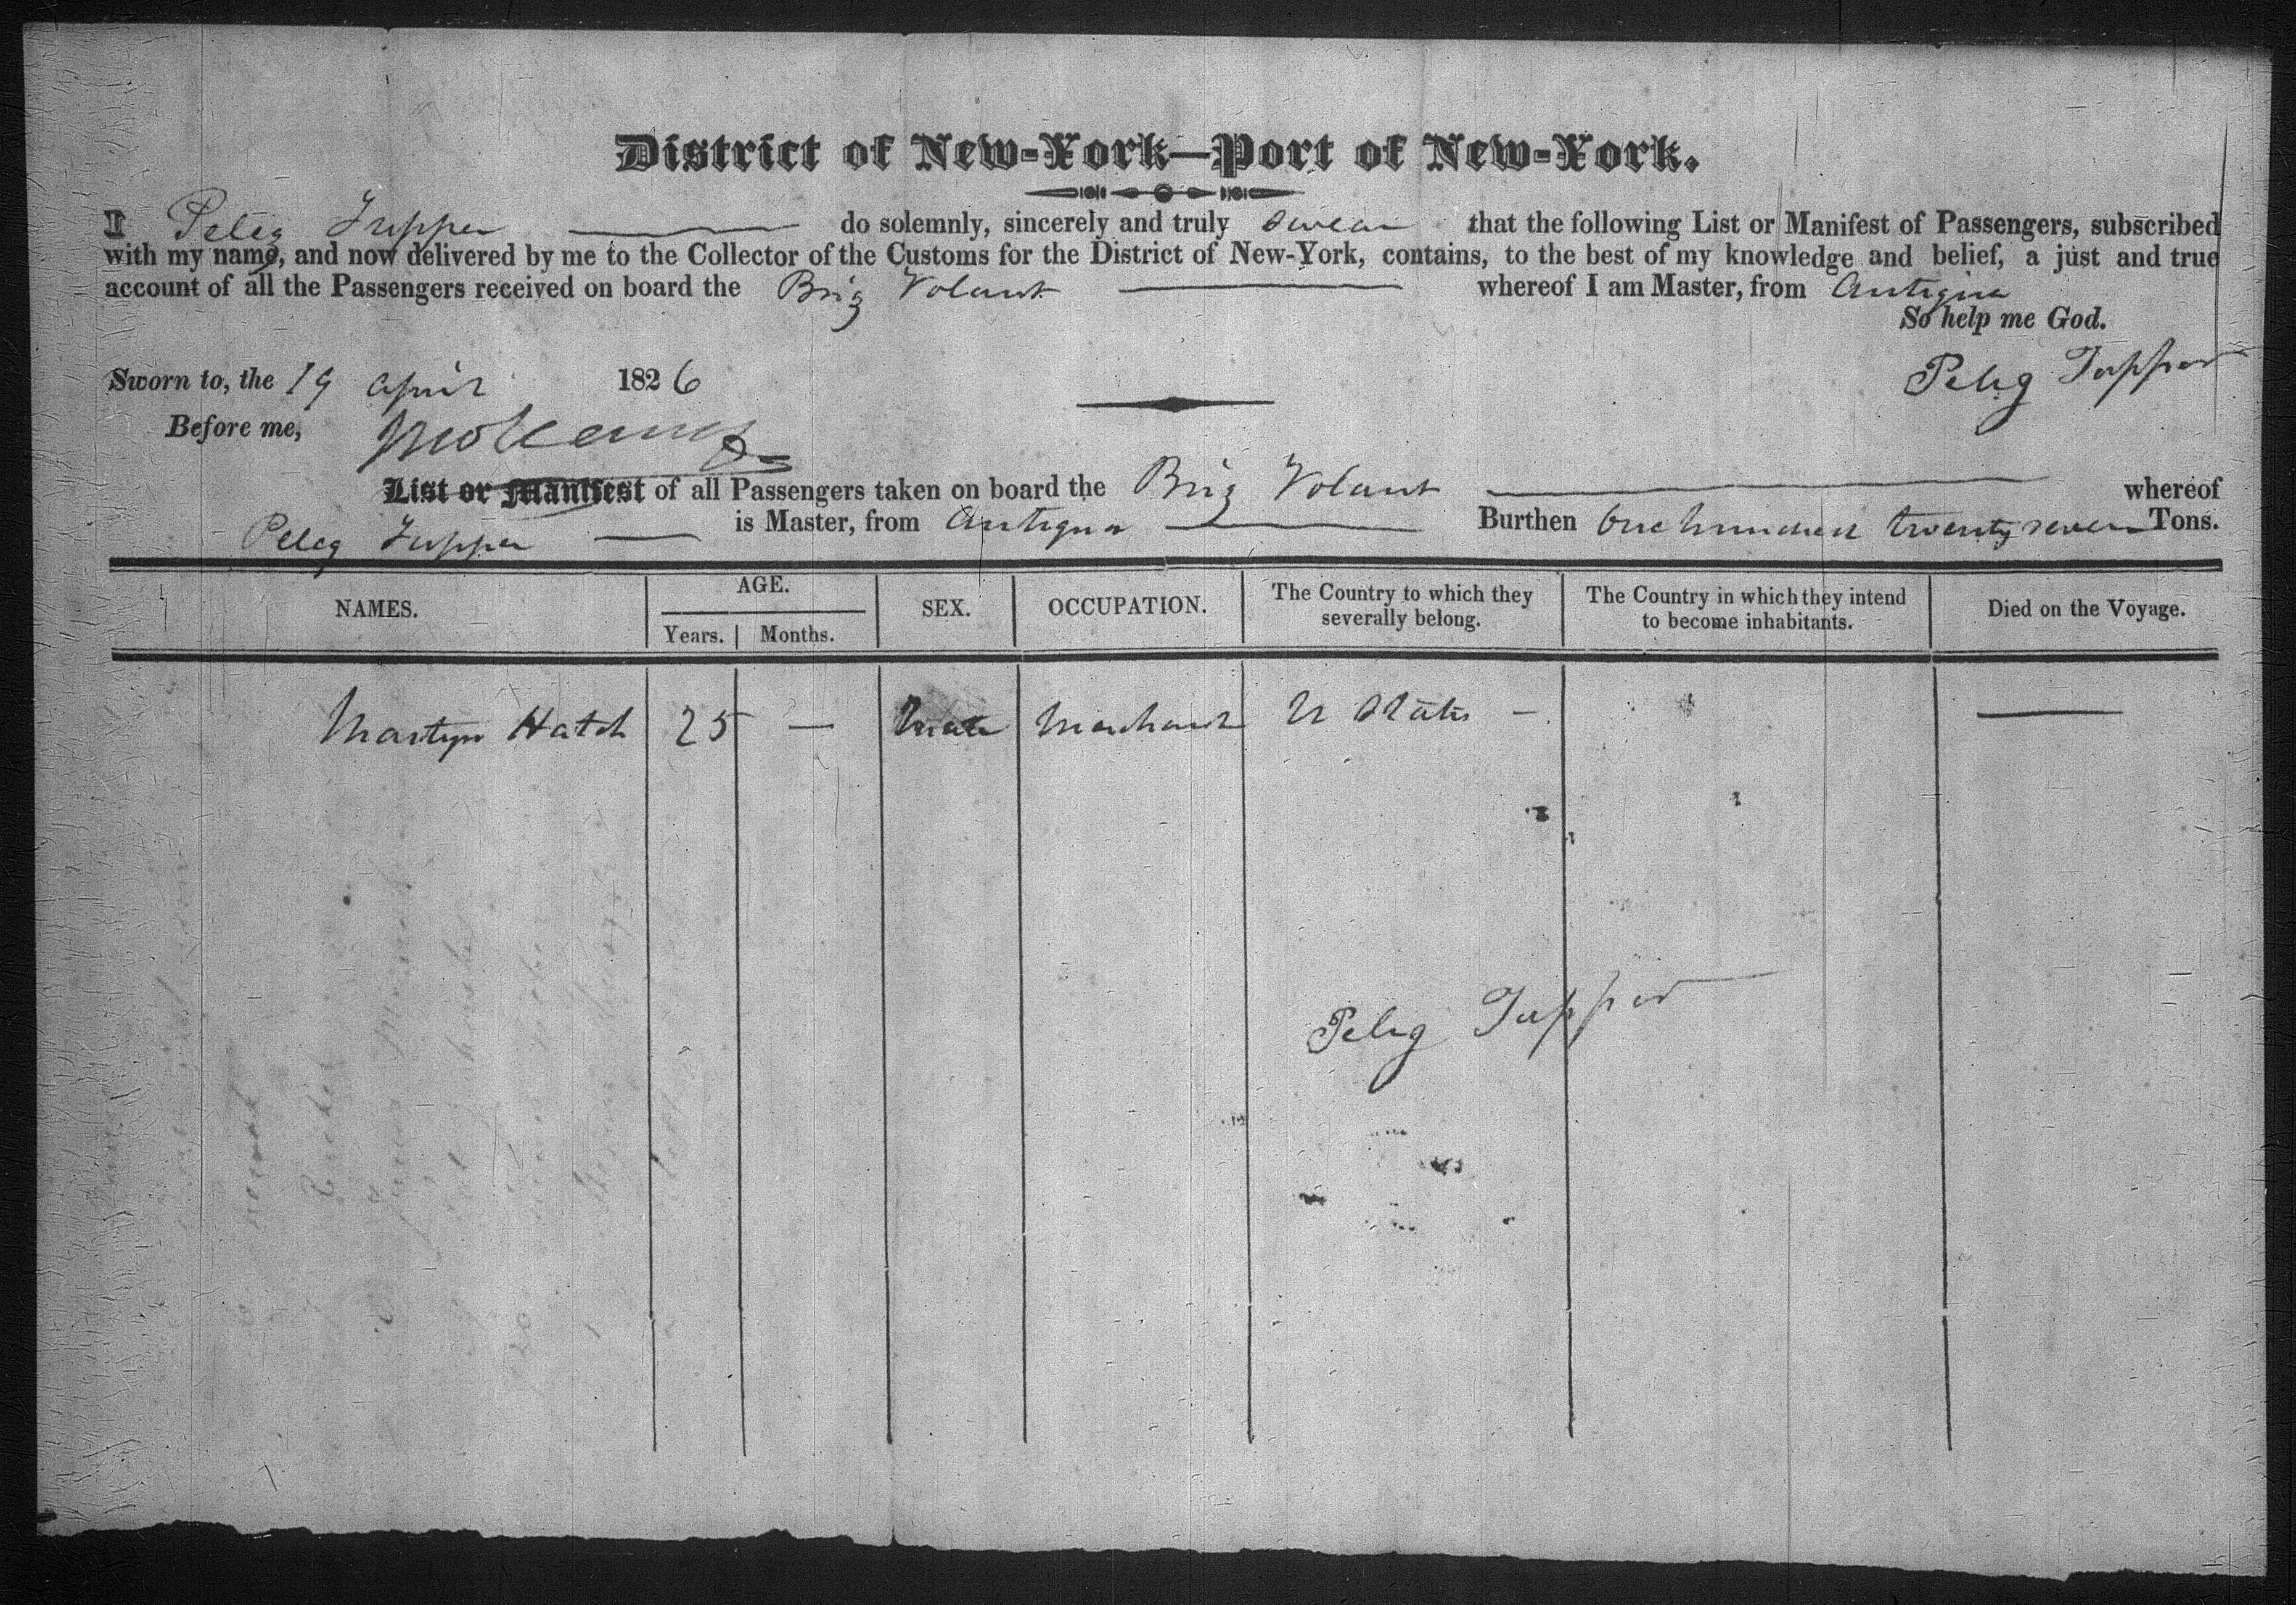 District of New-York—Port of New-York.
I Peleg Tupper do solemnly, sincerely and truly swear that the following List or Manifest of Passengers, subscribed
with my name, and now delivered by me to the Collector of the Customs for the District of New-York, contains, to the best of my knowledge and belief, a just and true
account of all the Passengers received on board the Brig Volant whereof I am Master, from Antigua
So help me God.
Sworn to, the 19 April 1826 Peleg Tupper
Before me,
List or Manifest of all Passengers taken on board the Brig Volant whereof
Peleg Tupper is Master, from Antigua Burthen One hundred twenty seven Tons.
NAMES. AGE. SEX. OCCUPATION. The Country to which they severally belong. The Country in which they intend to become inhabitants. Died on the Voyage.
Years. Months.
Martyn Hatch 25 — Male Merchant U States — —
Peleg Tupper